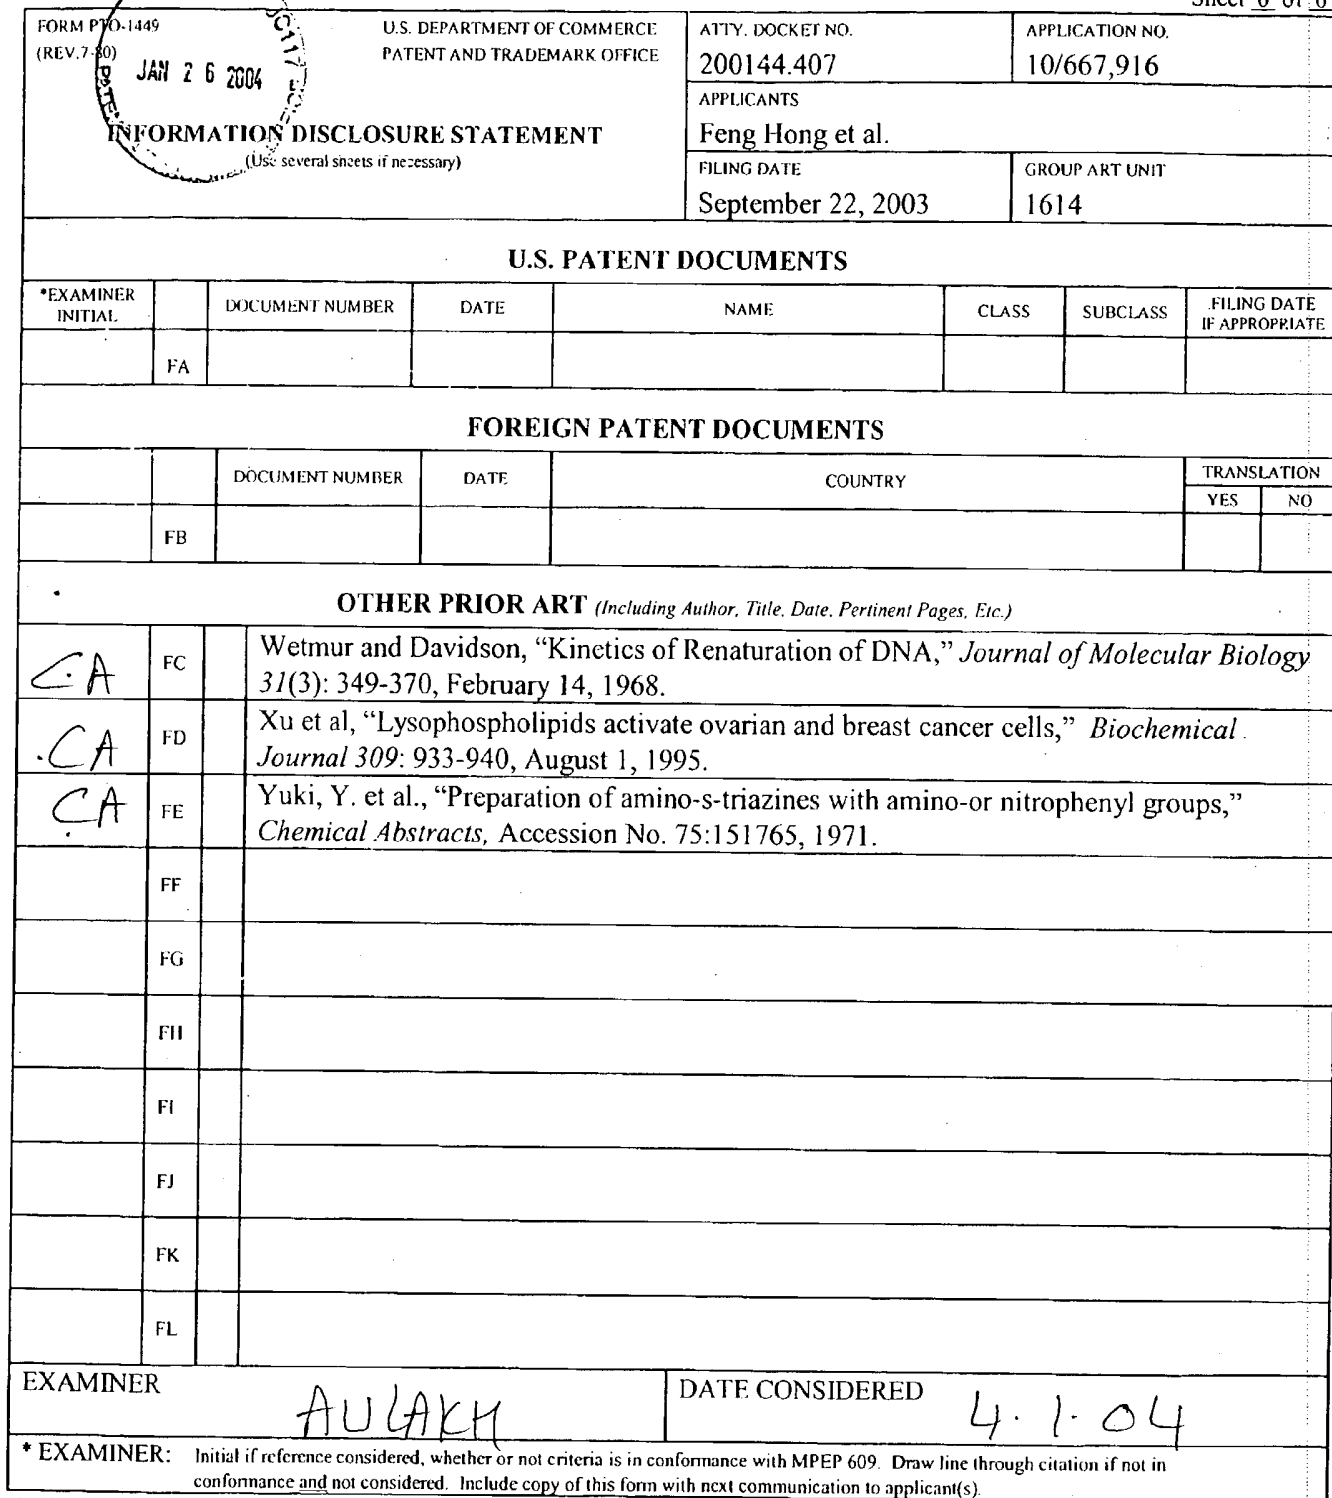 Sheet 6 of 6
FORM PTO-1449
(REV.7-80)
U.S. DEPARTMENT OF COMMERCE
PATENT AND TRADEMARK OFFICE
JAN 2 6 2004
INFORMATION DISCLOSURE STATEMENT
(Use several sheets if necessary)
ATTY. DOCKET NO.
200144.407
APPLICATION NO.
10/667,916
APPLICANTS
Feng Hong et al.
FILING DATE
September 22, 2003
GROUP ART UNIT
1614
U.S. PATENT DOCUMENTS
*EXAMINER
INITIAL
DOCUMENT NUMBER
DATE
NAME
CLASS
SUBCLASS
FILING DATE
IF APPROPRIATE
FA
FOREIGN PATENT DOCUMENTS
DOCUMENT NUMBER
DATE
COUNTRY
TRANSLATION
YES
NO
FB
OTHER PRIOR ART (Including Author, Title, Date, Pertinent Pages, Etc.)
C.A
FC
Wetmur and Davidson, “Kinetics of Renaturation of DNA,” Journal of Molecular Biology
31(3): 349-370, February 14, 1968.
CA
FD
Xu et al, “Lysophospholipids activate ovarian and breast cancer cells,” Biochemical
Journal 309: 933-940, August 1, 1995.
CA
FE
Yuki, Y. et al., “Preparation of amino-s-triazines with amino-or nitrophenyl groups,”
Chemical Abstracts, Accession No. 75:151765, 1971.
FF
FG
FH
FI
FJ
FK
FL
EXAMINER
AULAKH
DATE CONSIDERED
4.1.04
* EXAMINER: Initial if reference considered, whether or not criteria is in conformance with MPEP 609. Draw line through citation if not in
conformance and not considered. Include copy of this form with next communication to applicant(s).